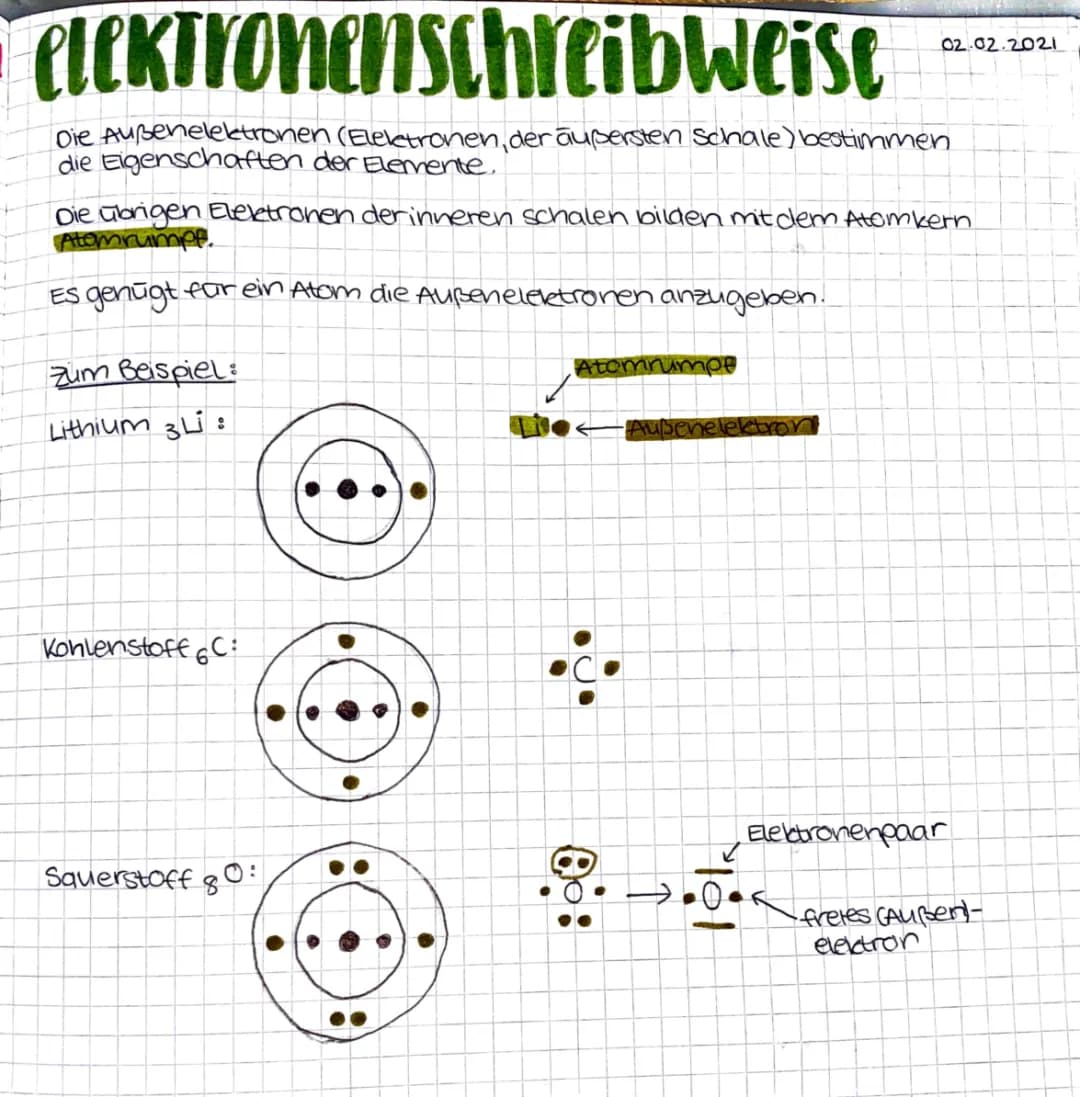 elektronenschreibweise
02.02.2021
Die Außenelektronen (Elektronen, der äußersten Schale) bestimmen
die Eigenschaften der Elemente.
Die übrigen Elektronen der inneren Schalen bilden mit dem Atomkern
Atomrumpf.
Es genügt für ein Atom die Außenelektronen anzugeben.
Zum Beispiel:
Atomrumpf
Lithium ₃Li :
Li
Außenelektron
Kohlenstoff ₆C:
C
Elektronenpaar
Sauerstoff ₈O:
O
O
freies (Außen)-
elektron